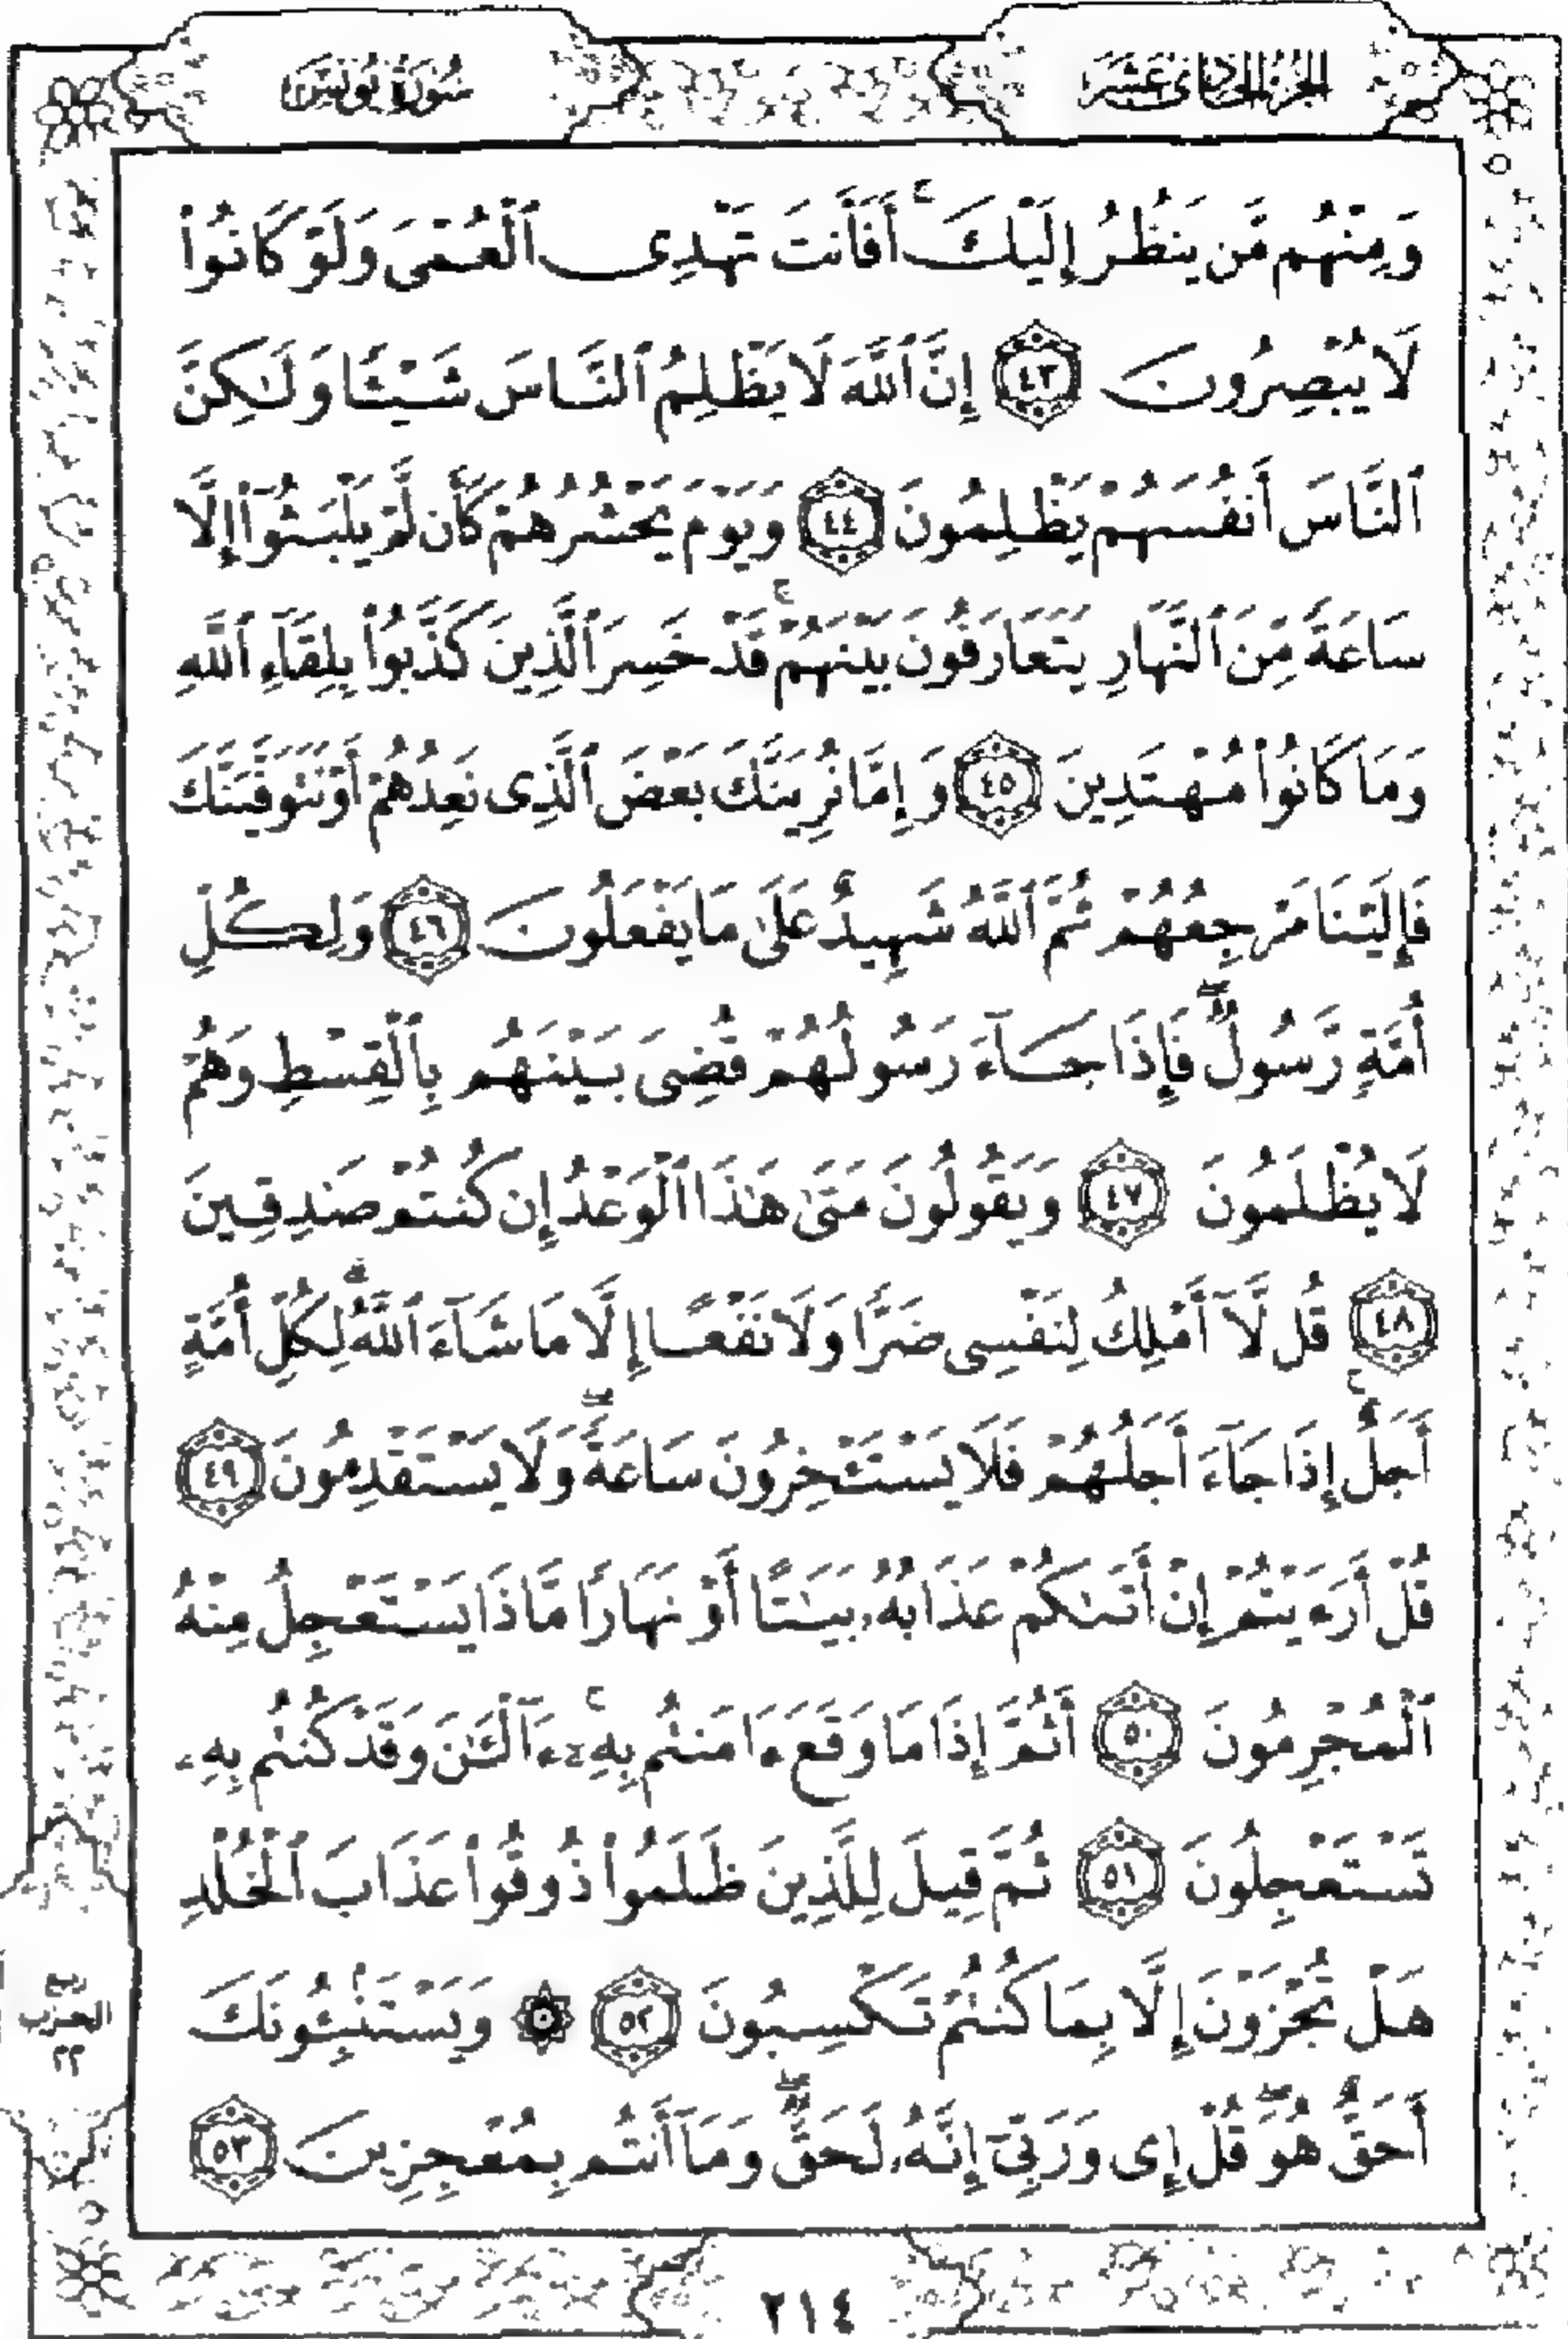 الجزء الحادى عشر
سورة يونس
وَمِنْهُم مَّن يَنظُرُ إِلَيْكَ ۚ أَفَأَنتَ تَهْدِى ٱلْعُمْىَ وَلَوْ كَانُوا۟
لَا يُبْصِرُونَ ٤٣ إِنَّ ٱللَّهَ لَا يَظْلِمُ ٱلنَّاسَ شَيْـًٔا وَلَـٰكِنَّ
ٱلنَّاسَ أَنفُسَهُمْ يَظْلِمُونَ ٤٤ وَيَوْمَ يَحْشُرُهُمْ كَأَن لَّمْ يَلْبَثُوٓا۟ إِلَّا
سَاعَةً مِّنَ ٱلنَّهَارِ يَتَعَارَفُونَ بَيْنَهُمْ ۚ قَدْ خَسِرَ ٱلَّذِينَ كَذَّبُوا۟ بِلِقَآءِ ٱللَّهِ
وَمَا كَانُوا۟ مُهْتَدِينَ ٤٥ وَإِمَّا نُرِيَنَّكَ بَعْضَ ٱلَّذِى نَعِدُهُمْ أَوْ نَتَوَفَّيَنَّكَ
فَإِلَيْنَا مَرْجِعُهُمْ ثُمَّ ٱللَّهُ شَهِيدٌ عَلَىٰ مَا يَفْعَلُونَ ٤٦ وَلِكُلِّ
أُمَّةٍ رَّسُولٌ ۖ فَإِذَا جَآءَ رَسُولُهُمْ قُضِىَ بَيْنَهُم بِٱلْقِسْطِ وَهُمْ
لَا يُظْلَمُونَ ٤٧ وَيَقُولُونَ مَتَىٰ هَـٰذَا ٱلْوَعْدُ إِن كُنتُمْ صَـٰدِقِينَ
٤٨ قُل لَّآ أَمْلِكُ لِنَفْسِى ضَرًّا وَلَا نَفْعًا إِلَّا مَا شَآءَ ٱللَّهُ ۗ لِكُلِّ أُمَّةٍ
أَجَلٌ ۚ إِذَا جَآءَ أَجَلُهُمْ فَلَا يَسْتَـْٔخِرُونَ سَاعَةً ۖ وَلَا يَسْتَقْدِمُونَ ٤٩
قُلْ أَرَءَيْتُمْ إِنْ أَتَىٰكُمْ عَذَابُهُۥ بَيَـٰتًا أَوْ نَهَارًا مَّاذَا يَسْتَعْجِلُ مِنْهُ
ٱلْمُجْرِمُونَ ٥٠ أَثُمَّ إِذَا مَا وَقَعَ ءَامَنتُم بِهِۦٓ ۚ ءَآلْـَٔـٰنَ وَقَدْ كُنتُم بِهِۦ
تَسْتَعْجِلُونَ ٥١ ثُمَّ قِيلَ لِلَّذِينَ ظَلَمُوا۟ ذُوقُوا۟ عَذَابَ ٱلْخُلْدِ
هَلْ تُجْزَوْنَ إِلَّا بِمَا كُنتُمْ تَكْسِبُونَ ٥٢ ۞ وَيَسْتَنۢبِـُٔونَكَ
أَحَقٌّ هُوَ ۖ قُلْ إِى وَرَبِّىٓ إِنَّهُۥ لَحَقٌّ ۖ وَمَآ أَنتُم بِمُعْجِزِينَ ٥٣
الحزب
٢٢
٢١٤